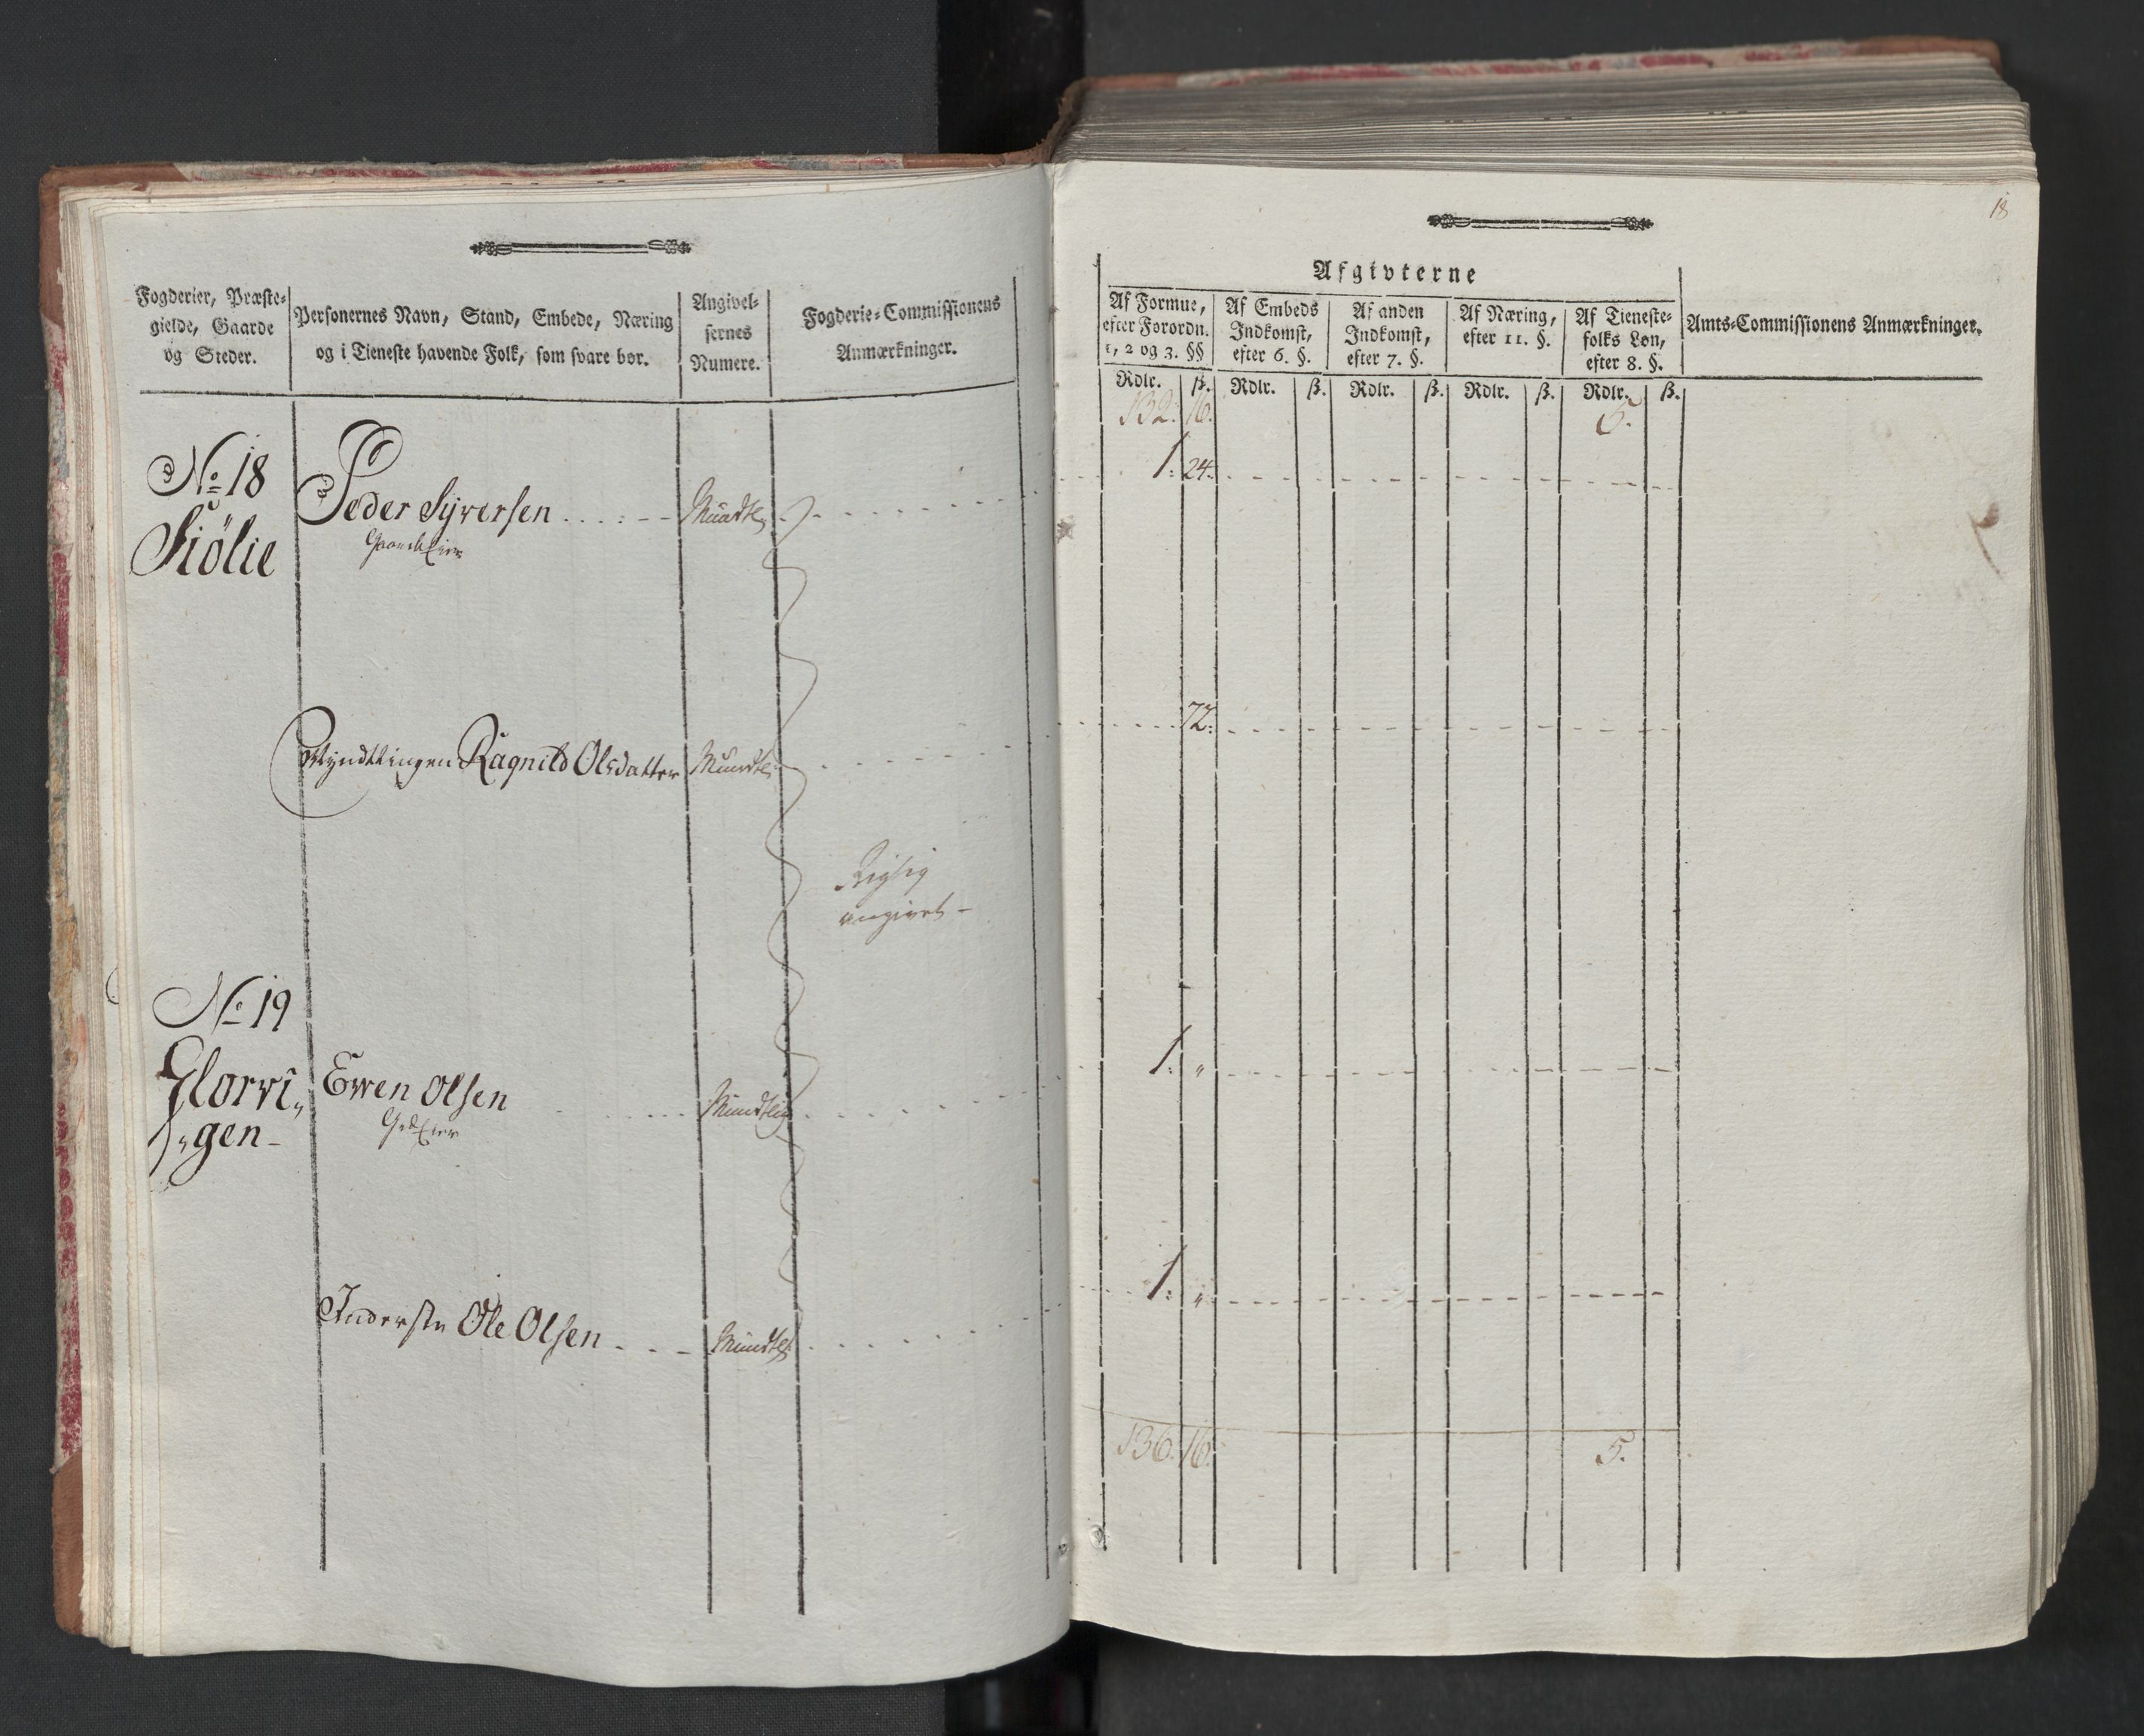 Fogderier, Præste-
gielde, Gaarde
og Steder.
Personernes Navn, Stand, Embede, Næring
og i Tieneste havende Folk, som svare bør.
Angivel-
sernes
Numere.
Fogderie-Commissionens
Anmærkninger.
No 18
Siölie
Peder Syversen
Gaard Eier
Mundtlig
Myndtlingen Ragnild Olsdatter
Mundtlig
Rigtig
angivet -
No 19
gen-
Even Olsen
Gd Eier
Mundtlig
Inderste Ole Olsen
Mundtlig
18
Afgivterne
Af Formue,
efter Forordn.
1, 2 og 3. §§
Af Embeds
Indkomst,
efter 6. §.
Af anden
Indkomst,
efter 7. §.
Af Næring,
efter 11. §.
Af Tieneste-
folks Løn,
efter 8. §.
Amts-Commissionens Anmærkninger.
Rdlr. ß. Rdlr. ß. Rdlr. ß. Rdlr. ß. Rdlr. ß.
132. 16. 5.
1. 24.
72.
1. "
1. "
136. 16. 5.